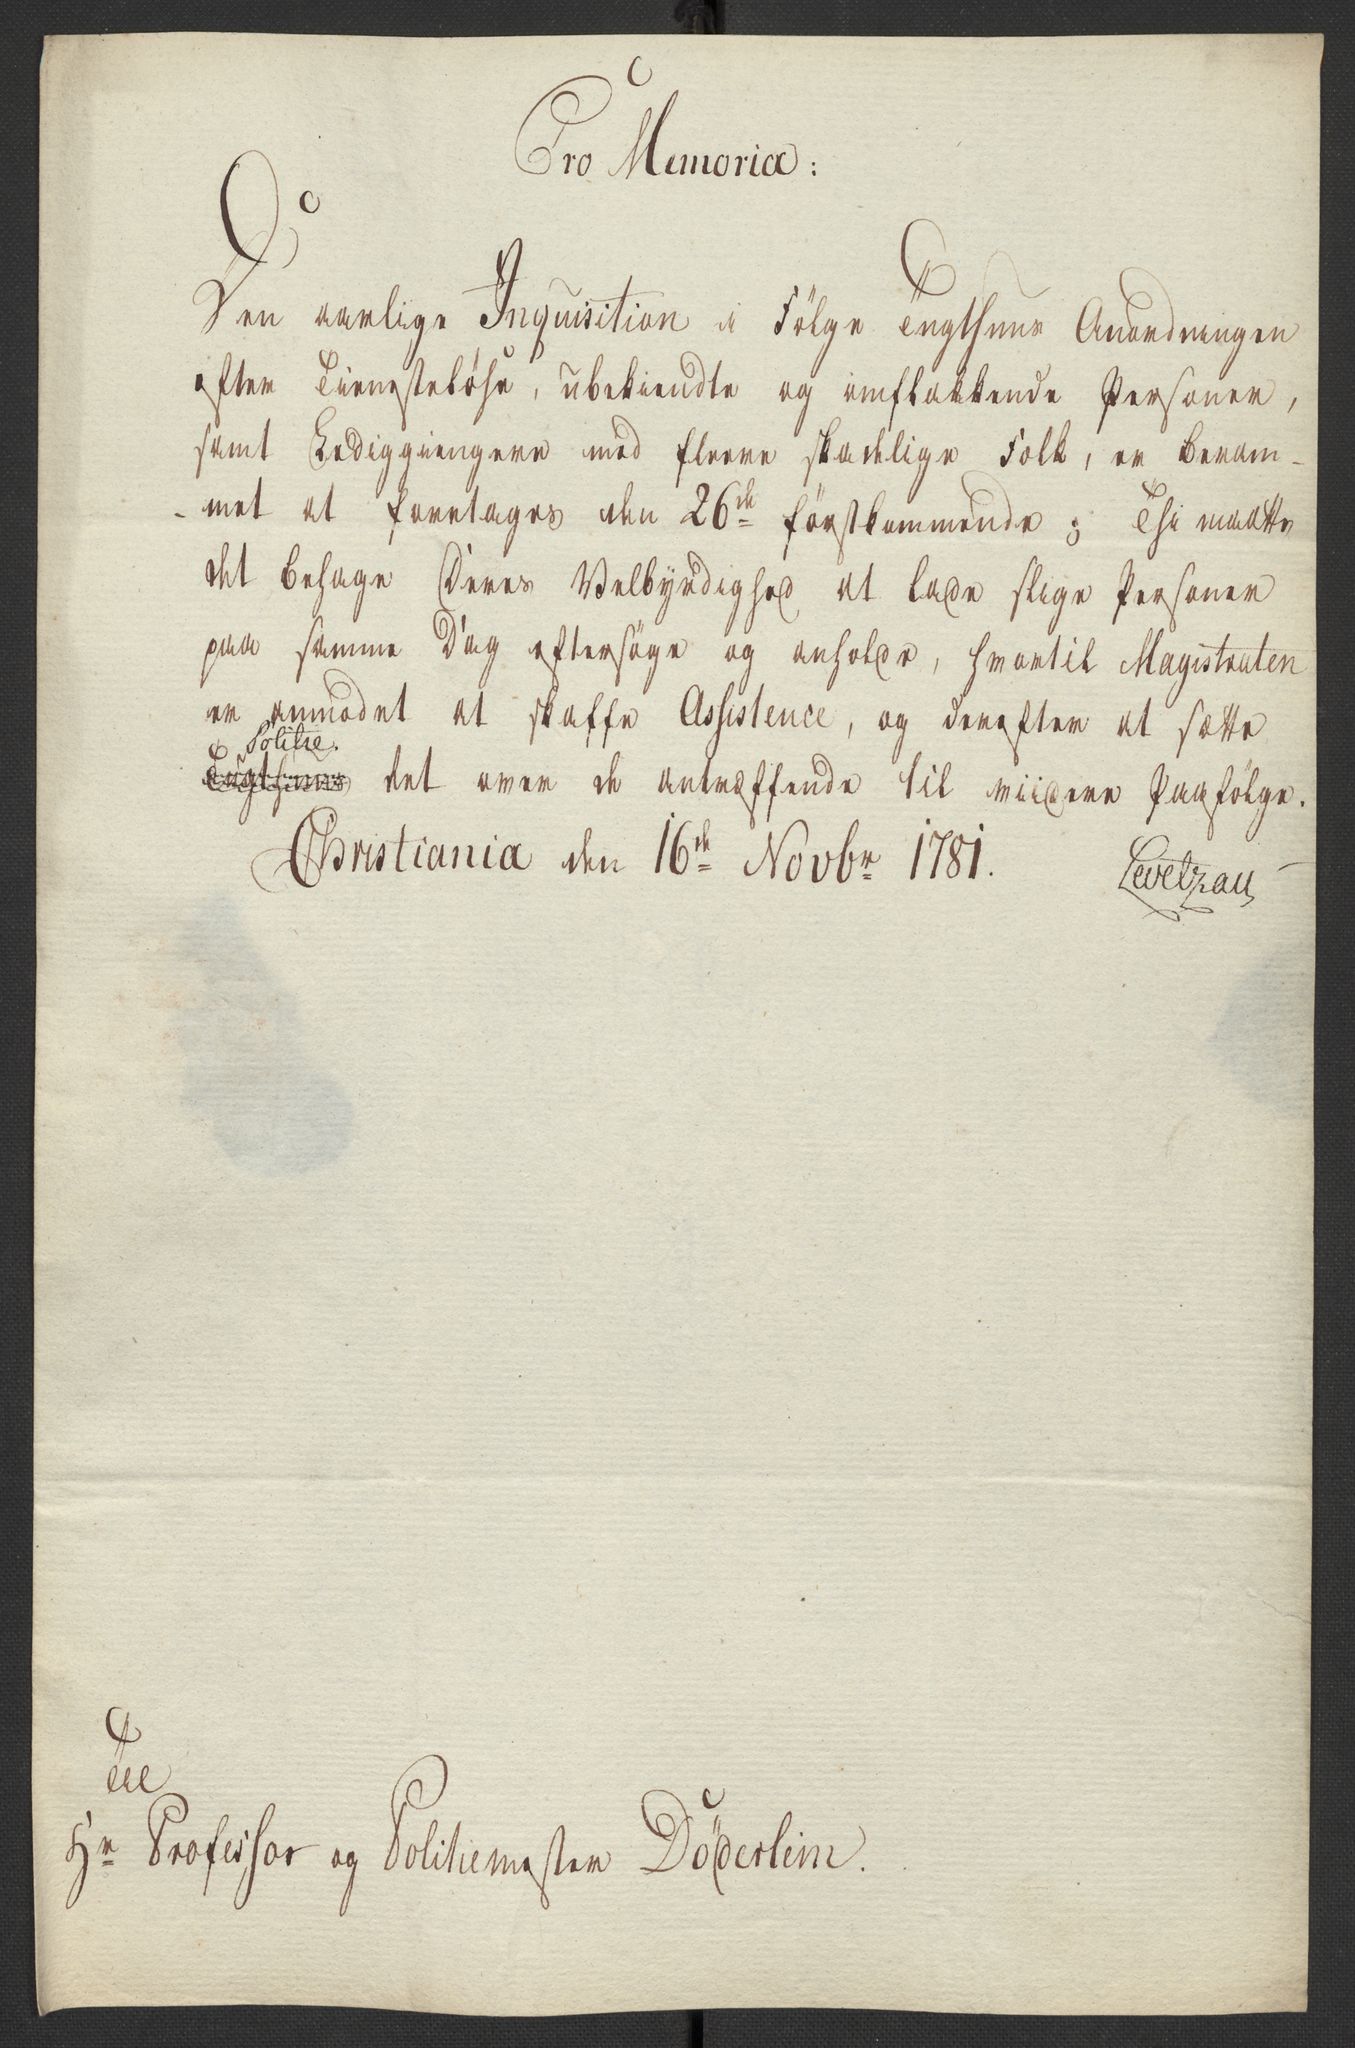 Pro Memoria:
Den aarlige Inquisition i Fölge Tugthuus Anordningen
efter Tienestelöhse, ubekiendte og omflakkende Personer,
samt Lediggiengere med fleere skadelige Folk, er beram-
-met at foretages den 26de förstkommende; Thi maatte
det behage Deres Velbyrdighed at lade slige Personer
paa samme Dag eftersöge og anholde, hvortil Magistraten
er anmodet at skaffe Assistence, og derefter at sætte
Politie.
Tugthuus det over de antræffende til viidere Paafölge.
Christiania den 16de Novbr 1781. Levetzau
Til
Hr Professor og Politiemester Döderlein.